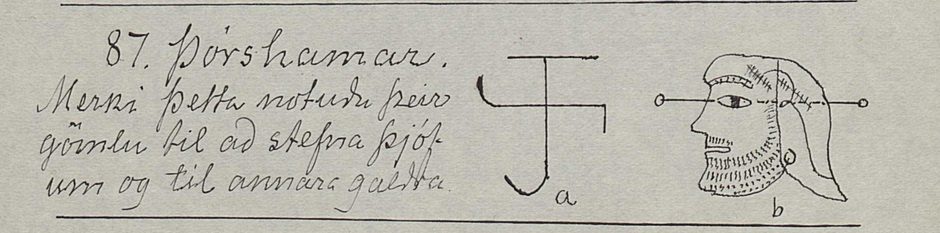 87. Þórshamar.
Merki þetta notuðu þeir
gömlu til að stefna þjóf-
um og til annara galdra.
a
b